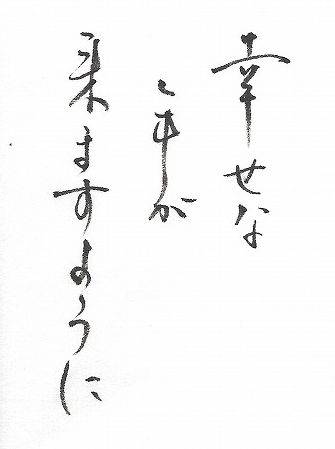 幸せな
が
来ますように